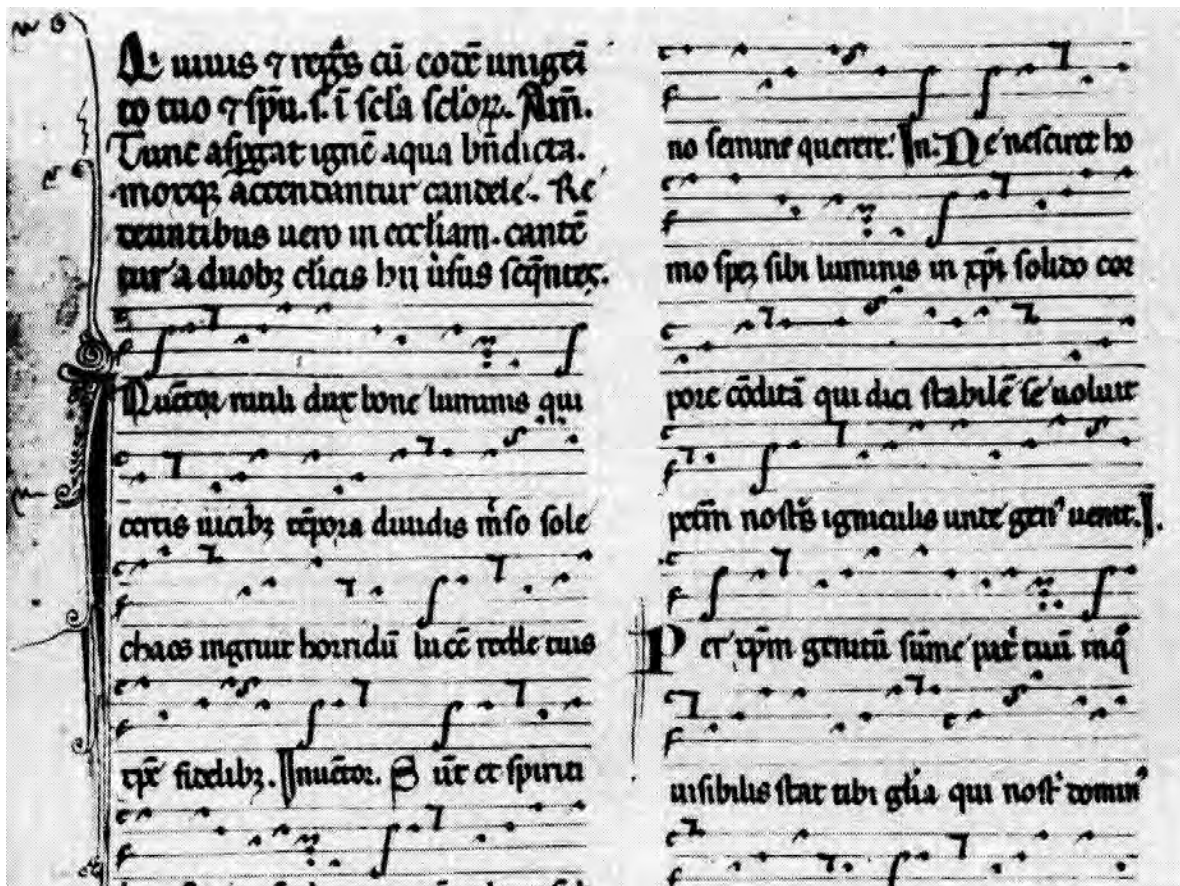 Qui uiuis ⁊ regͣs cū eodē unigēi
to tuo ⁊ spū. s. ī scl̄a scl̄oꝝ. Am̄.
Tunc aspgat ignē aqua bn̄dicta.
moxqꝫ accendantur candele. Re
deuntibus uero in eccl̄iam. cantē
tur a duobꝫ cl̄icis hii ủsus seq̄ntes.
Nuētor rutili dux bone luminis qui
certis uicibꝫ tēpora diuidis m̉so sole
chaos ingruit horridū lucē redde tuis
xp̄e fidelibꝫ. Inuētor. S unt et spiriti
no semine querere. In. Ne nesciret ho
mo spez sibi luminis in xp̄i solido cor
pore cōditā qui dici stabilē se uoluit
petrā nost̄s igniculis unde gen᷒ uenit. I.
P er xp̄m genitū sūme pat̉ tuū inq̊
uisibilis stat tibi gl̄ia qui nost̉ domin᷒